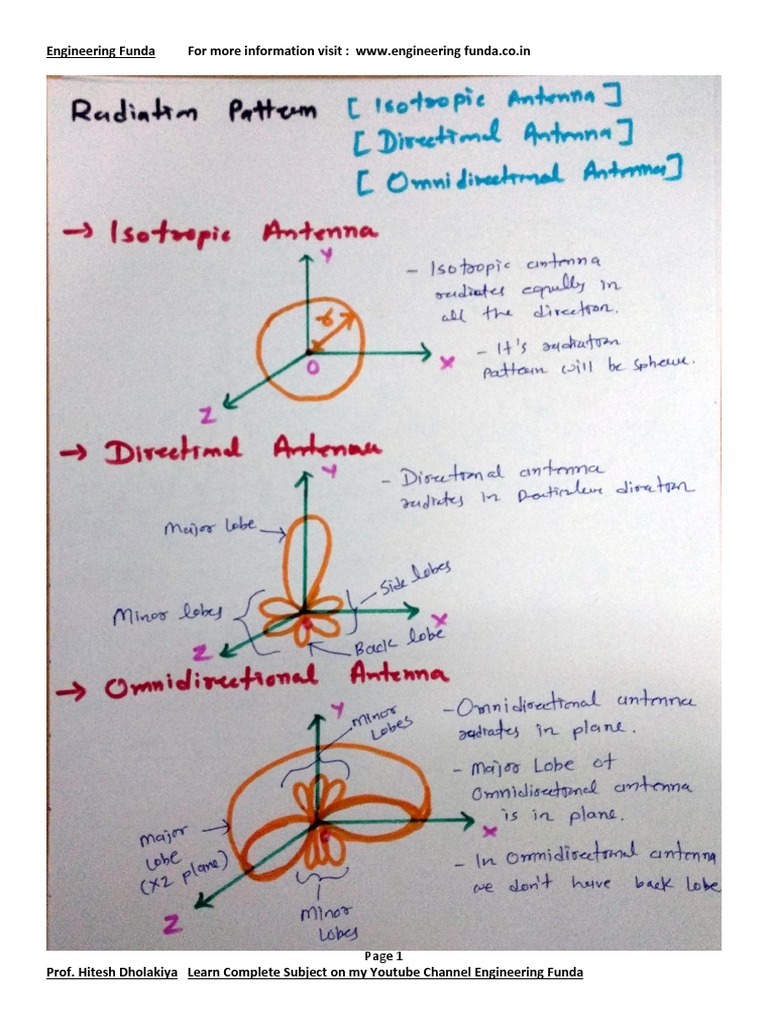 Engineering Funda For more information visit : www.engineering funda.co.in
Radiation Pattern [ Isotropic Antenna ]
[ Directional Antenna ]
[ Omnidirectional Antenna ]
→ Isotropic Antenna
Y
- Isotropic antenna
radiates equally in
all the direction.
r
- It's radiation
pattern will be sphere.
X
O
Z
→ Directional Antenna
Y
- Directional antenna
radiates in particular direction
Major lobe
Side lobes
Minor lobes
X
Z
Back lobe
→ Omnidirectional Antenna
Y
Minor
Lobes
- Omnidirectional antenna
radiates in plane.
- Major Lobe of
Omnidirectional antenna
is in plane.
X
Major
lobe
(XZ plane)
- In Omnidirectional antenna
we don't have back lobe
Z
Minor
Lobes
Page 1
Prof. Hitesh Dholakiya Learn Complete Subject on my Youtube Channel Engineering Funda